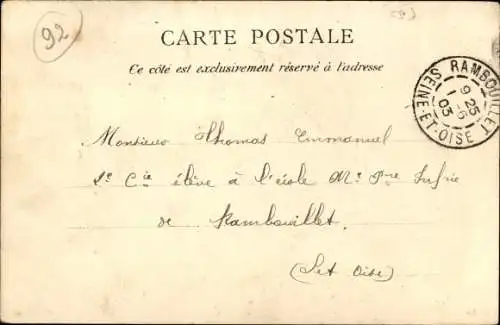 92
CARTE POSTALE
Ce côté est exclusivement réservé à l'adresse
RAMBOUILLET
9 25
1 -5
03
SEINE-ET-OISE
Monsieur Thomas Emmanuel
2e Cie élève à l'école Mre Pre Infrie
de Rambouillet
(S et Oise)